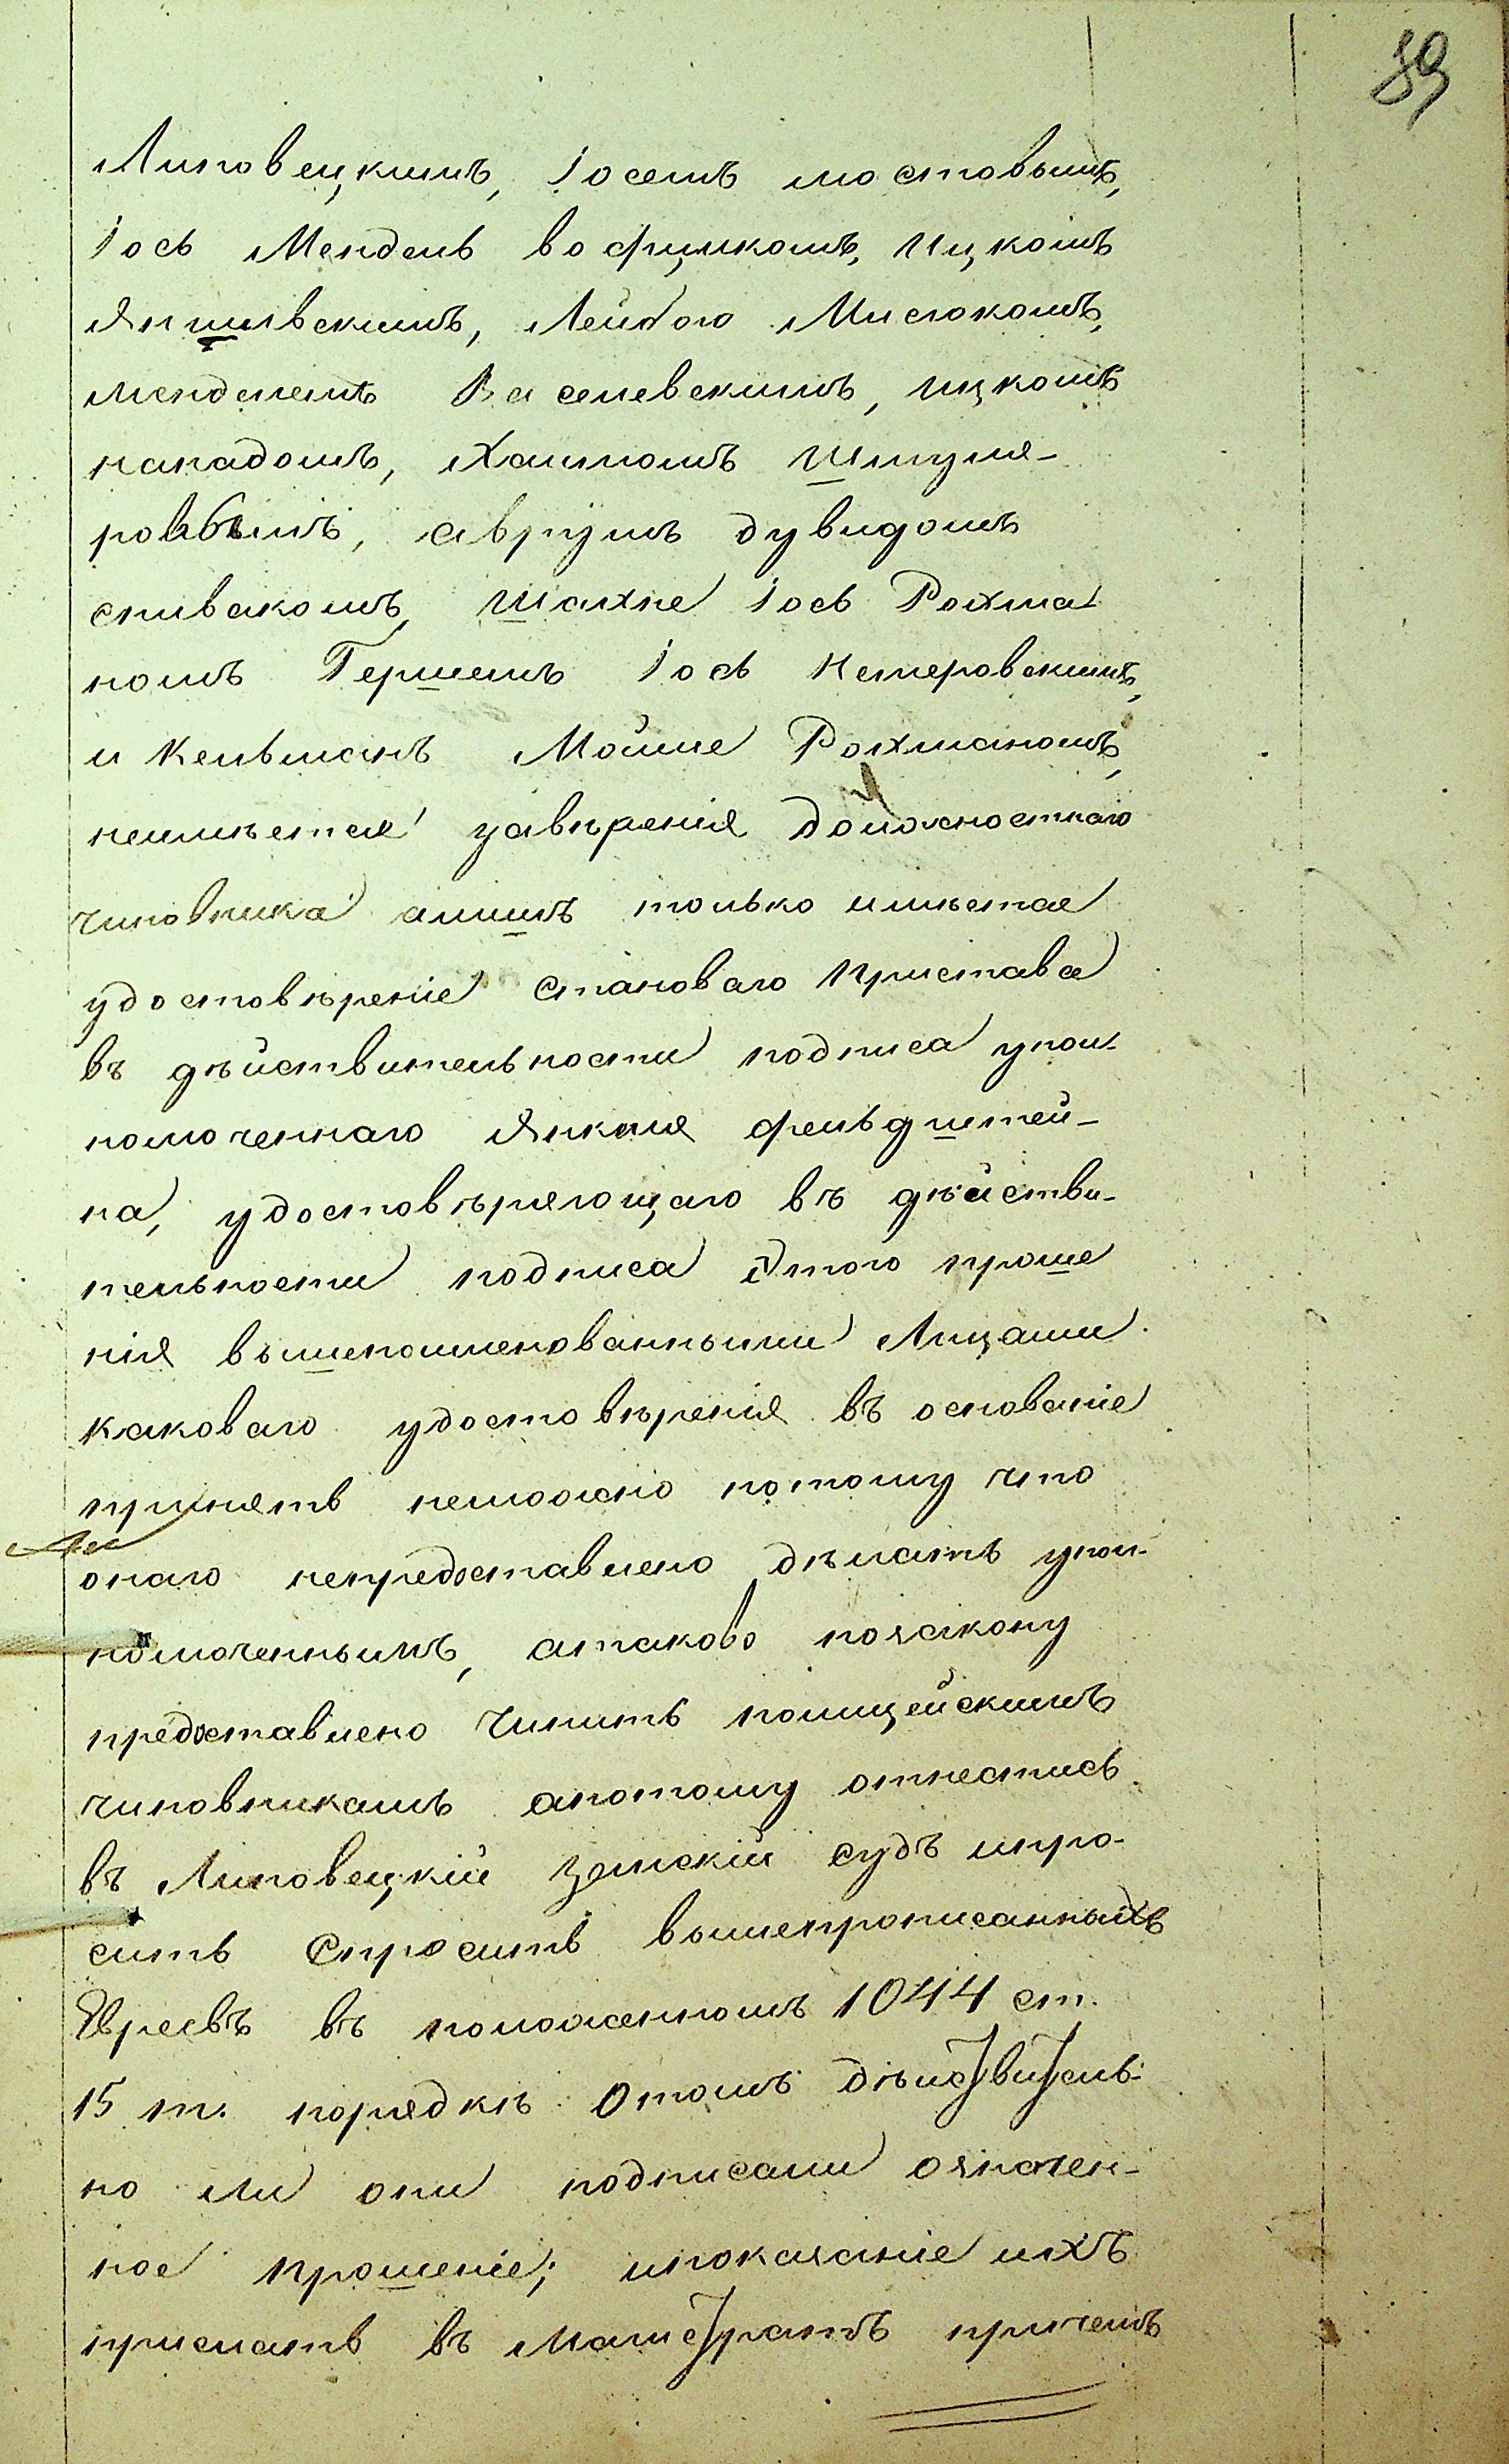 89
Липовецкимъ, Іосемъ мостовымъ,
Іось Мендель вофцикомъ, Ицкомъ
Янишвскимъ, Лейбою Мисюкомъ,
менделемъ Василевскимъ, ицкомъ
нападомъ, Хаимомъ Шмуля-
ровымъ, аврумъ дувидомъ
спивакомъ, Шахне Іось Рахма
номъ Гершемъ Іось Немеровскимъ,
и Кельманъ Мойше Рахманомъ,
неимѣется завѣренія должностнаго
чиновника алишъ только имѣетае
удостовѣреніе становаго пристава
въ дѣйствительности подписа упол-
номоченнаго Янкеля фельдштей-
на, удостовѣряющаго въ дѣйстви-
тельности подписа этого проше
нія вышепоименованными Лицами
каковаго удостовѣренія въ основаніе
принять неможно потому что
онаго непредоставлено дѣлать упол-
номоченнымъ, атаково позакону
предоставлено чинить полицейскимъ
чиновникамъ апотому отнестись
въ Липовецкій земскій судъ ипро-
сить спросить вышепрописанныхъ
Евреевъ въ положенномъ 1044 ст.
15 т. порядкѣ Отомъ дѣйствитель-
но ли они подписали означен-
ное прошеніе; ипоказаніе ихъ
прислать въ магистратъ причемъ